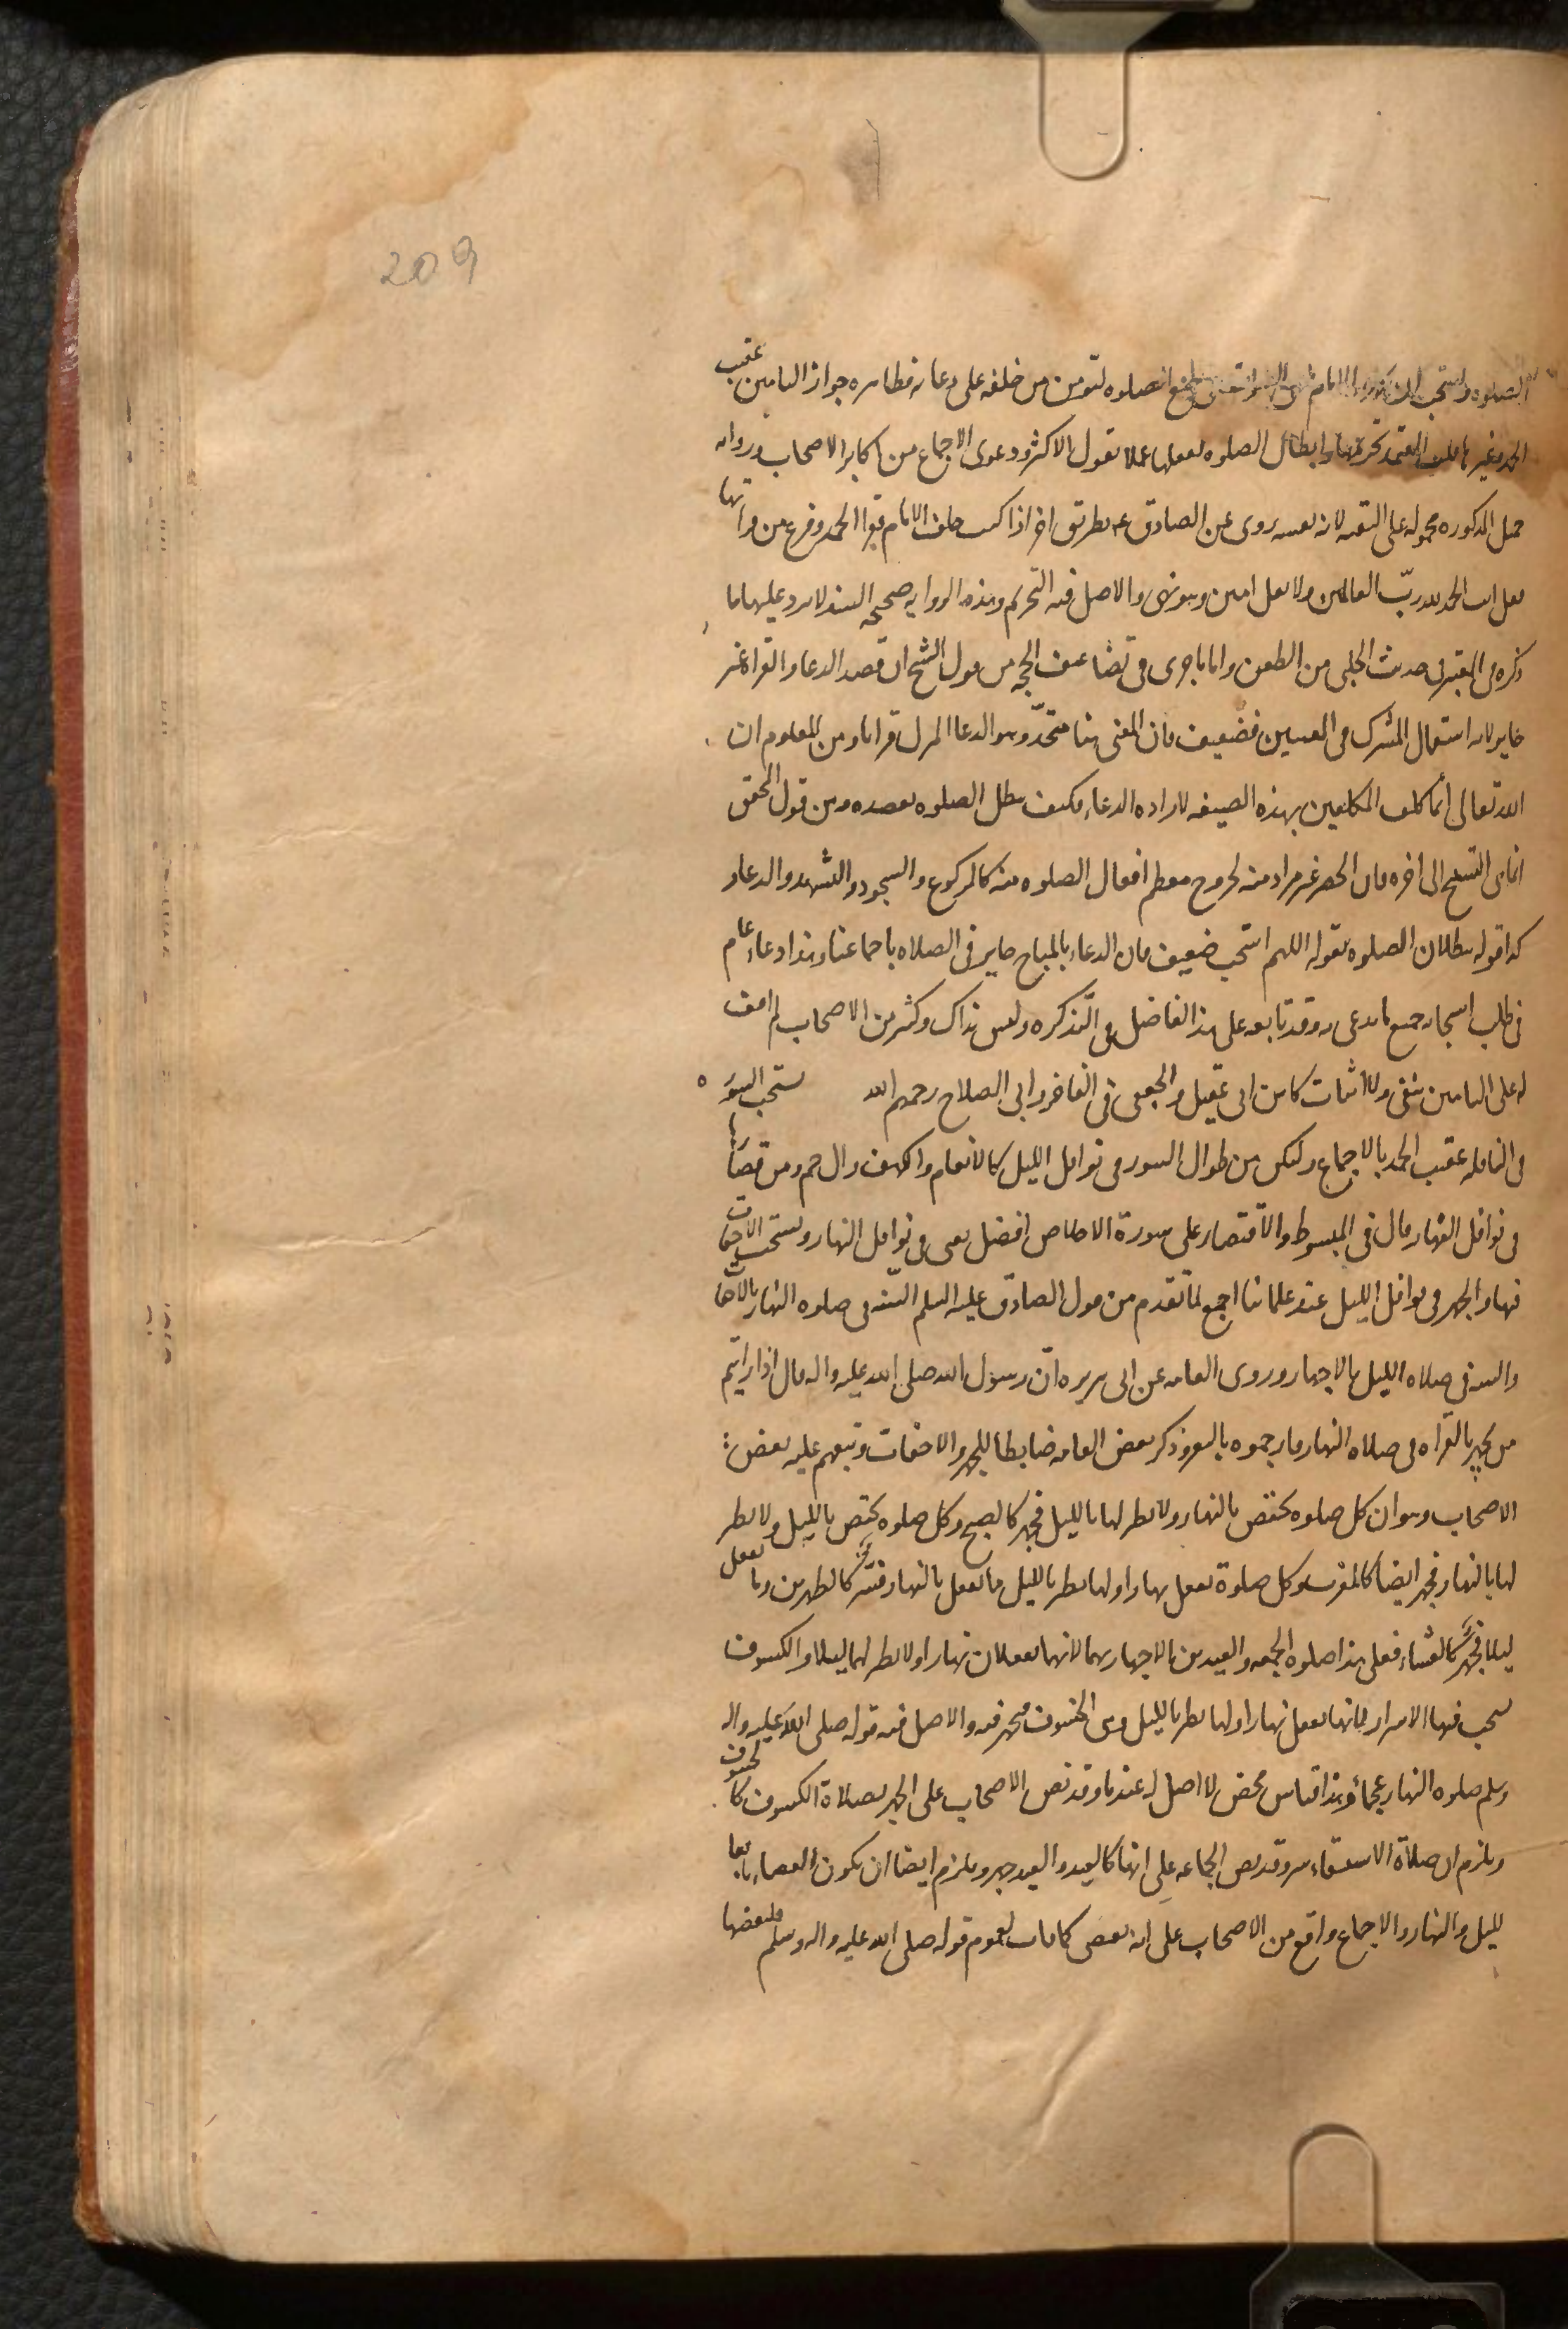 209
الصلوه لتومن من خلفه على دعائه فظاهره جواز التامين عقيب
الحمد وغيرها قلت المعتمد تحريمها وابطال الصلوه بفعلها عملا بقول الاكثر ودعوى الاجماع من اكابر الاصحاب ورواية
جميل المذكوره محمولة على التقيه لانه بعينه روى عن الصادق ع بطريق اخر اذا كنت خلف الامام فقرا الحمد وفرغ من قراتها
فقل انت الحمد لله ربّ العالمين ولا تقل امين وهو نهى والاصل فيه التحريم وهذه الروايه صحيحة السند لا يرد عليها ما
ذكره فى المعتبر فى حديث الحلبى من الطعن واما ما جرى فى تضاعيف الحجه من قول الشيخ ان قصد الدعا والقراءة غير
جايز لانه استعمال المشترك فى المعنيين فضعيف فان المعنى هنا متحدّ وهو الدعا المنزل قرانا ومن المعلوم ان
الله تعالى انما كلف المكلفين بهذه الصيغه لاراده الدعاء فكيف تبطل الصلوه بقصده ومن قول المحقق
انما هى التسبيح الى اخره فان الحصر غير مراد منه لخروج معظم افعال الصلوه منه كالركوع والسجود والتشهد والدعاء و
كذا قوله ببطلان الصلوه بقوله اللهم استجب ضعيف فان الدعاء بالمباح جايز فى الصلاه باجماعنا وهذا دعاء عام
فى طلب استجابه جميع ما يدعى به وقد تابعه على هذا الفاضل فى التذكره وليس بذاك وكثير من الاصحاب لم اقف
له على التامين بنفى ولا اثبات كابن ابى عقيل والجعفى فى الفاخر وابى الصلاح رحمهم الله يستحب السوره
فى النافله عقيب الحمد بالاجماع وليكن من طوال السور فى نوافل الليل كالانعام والكهف وال حم ومن قصارها
فى نوافل النهار قال فى المبسوط والاقتصار على سورة الاخلاص افضل يعنى فى نوافل النهار ويستحب الاخفات
فيها والجهر فى نوافل الليل عند علمائنا اجمع لما تقدم من قول الصادق عليه السلم السّنه فى صلوه النهار بالاخفات
والسنه فى صلاه الليل بالاجهار وروى العامه عن ابى هريره انّ رسول الله صلى الله عليه واله قال اذا رايتم
من يجهر بالقراه فى صلاه النهار فارجموه بالبعر وذكر بعض العامه ضابطا للجهر والاخفات وتبعهم عليه بعض
الاصحاب وهو ان كل صلوه تختص بالنهار ولا نظير لها بالليل فجهر كالصبح وكل صلوه تختص بالليل ولا نظير
لها بالنهار فجهر ايضا كالمغرب وكل صلوة تفعل نهارا ولها نظير بالليل فما تفعل بالنهار فسّر كالظهرين وما تفعل
ليلا فجهر كالعشاء فعلى هذا صلوه الجمعه والعيدين بالاجهار بهما لانهما تفعلان نهارا ولا نظير لهما ليلا والكسوف
يستحب فيها الاسرار لانها تفعل نهارا ولها نظير بالليل وهى الخسوف فيجهر فيه والاصل فيه قوله صلى الله عليه واله
وسلم صلوه النهار عجماء وهذا قياس محض لا اصل له عندنا وقد نص الاصحاب على الجهر بصلاة الكسوف كالخسوف
ويلزم ان صلاة الاستسقاء سر وقد نص الجماعه على انها كالعيد والعيد جهر ويلزم ايضا ان يكون القضاء تابعا
لليل والنهار والاجماع واقع من الاصحاب على انه يقضى كما فات لعموم قوله صلى الله عليه واله وسلم فليقضها